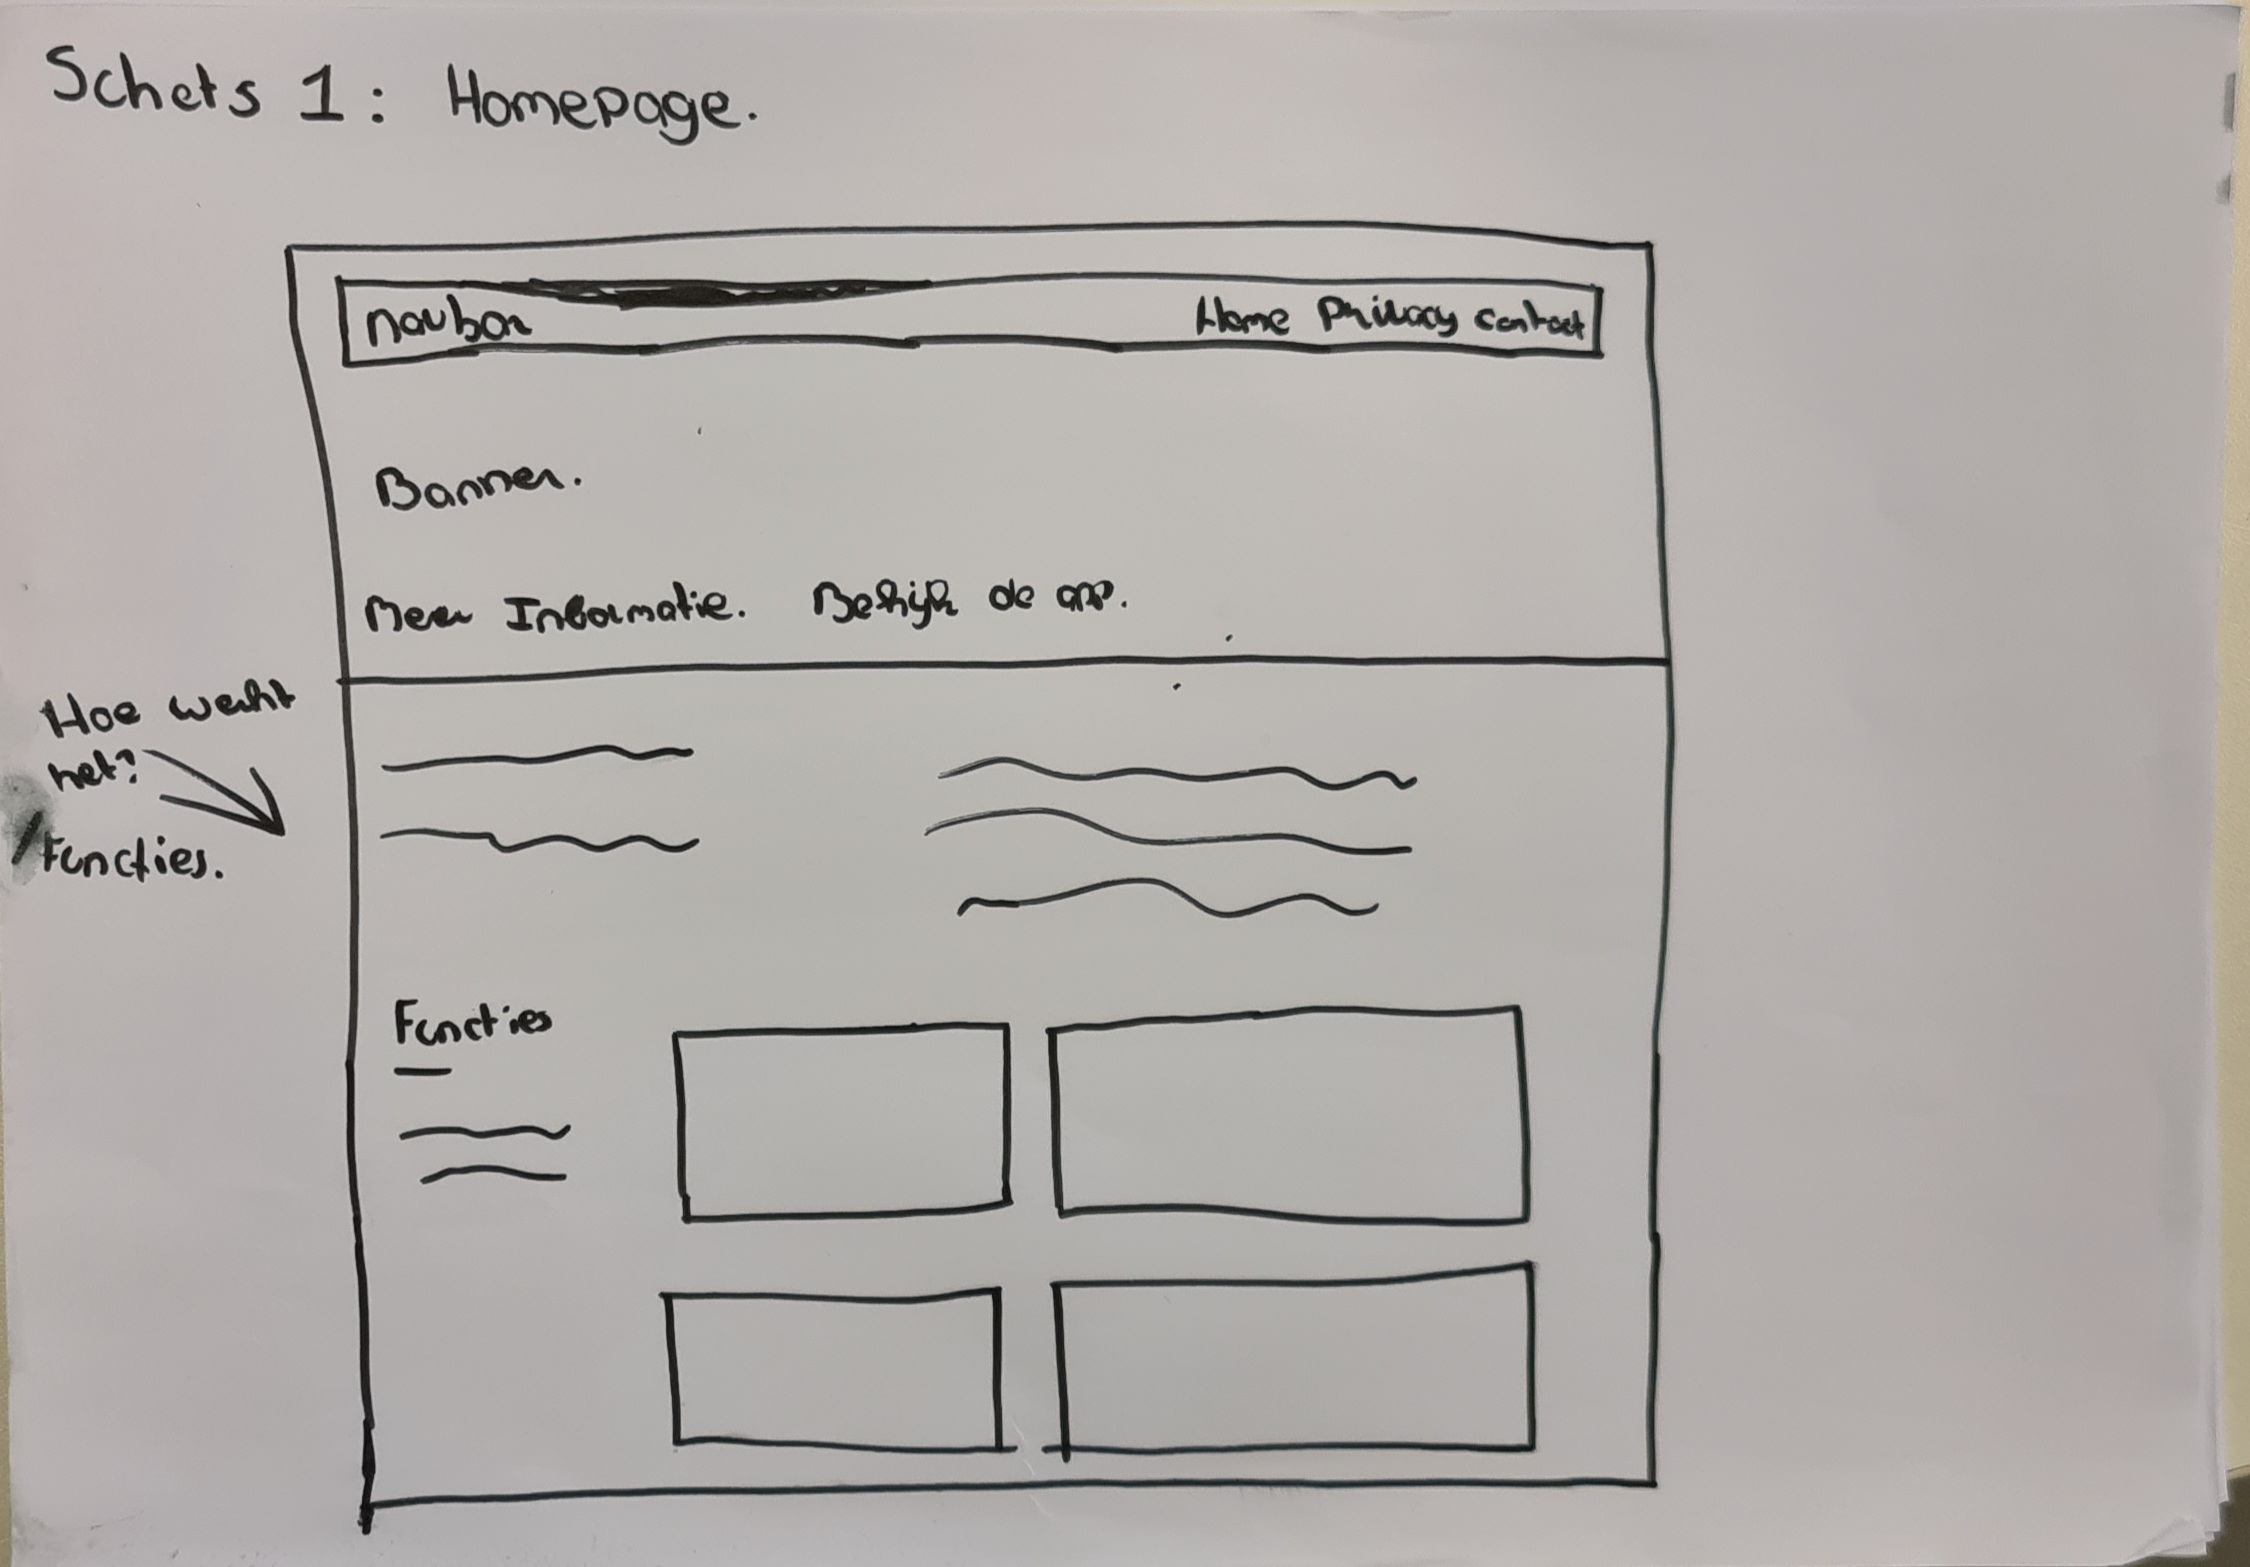 Schets 1: Homepage.
navbar Home Privacy contact
Banner.
Meer Informatie. Bekijk de app.
Hoe werkt
het?
/Functies.
Functies